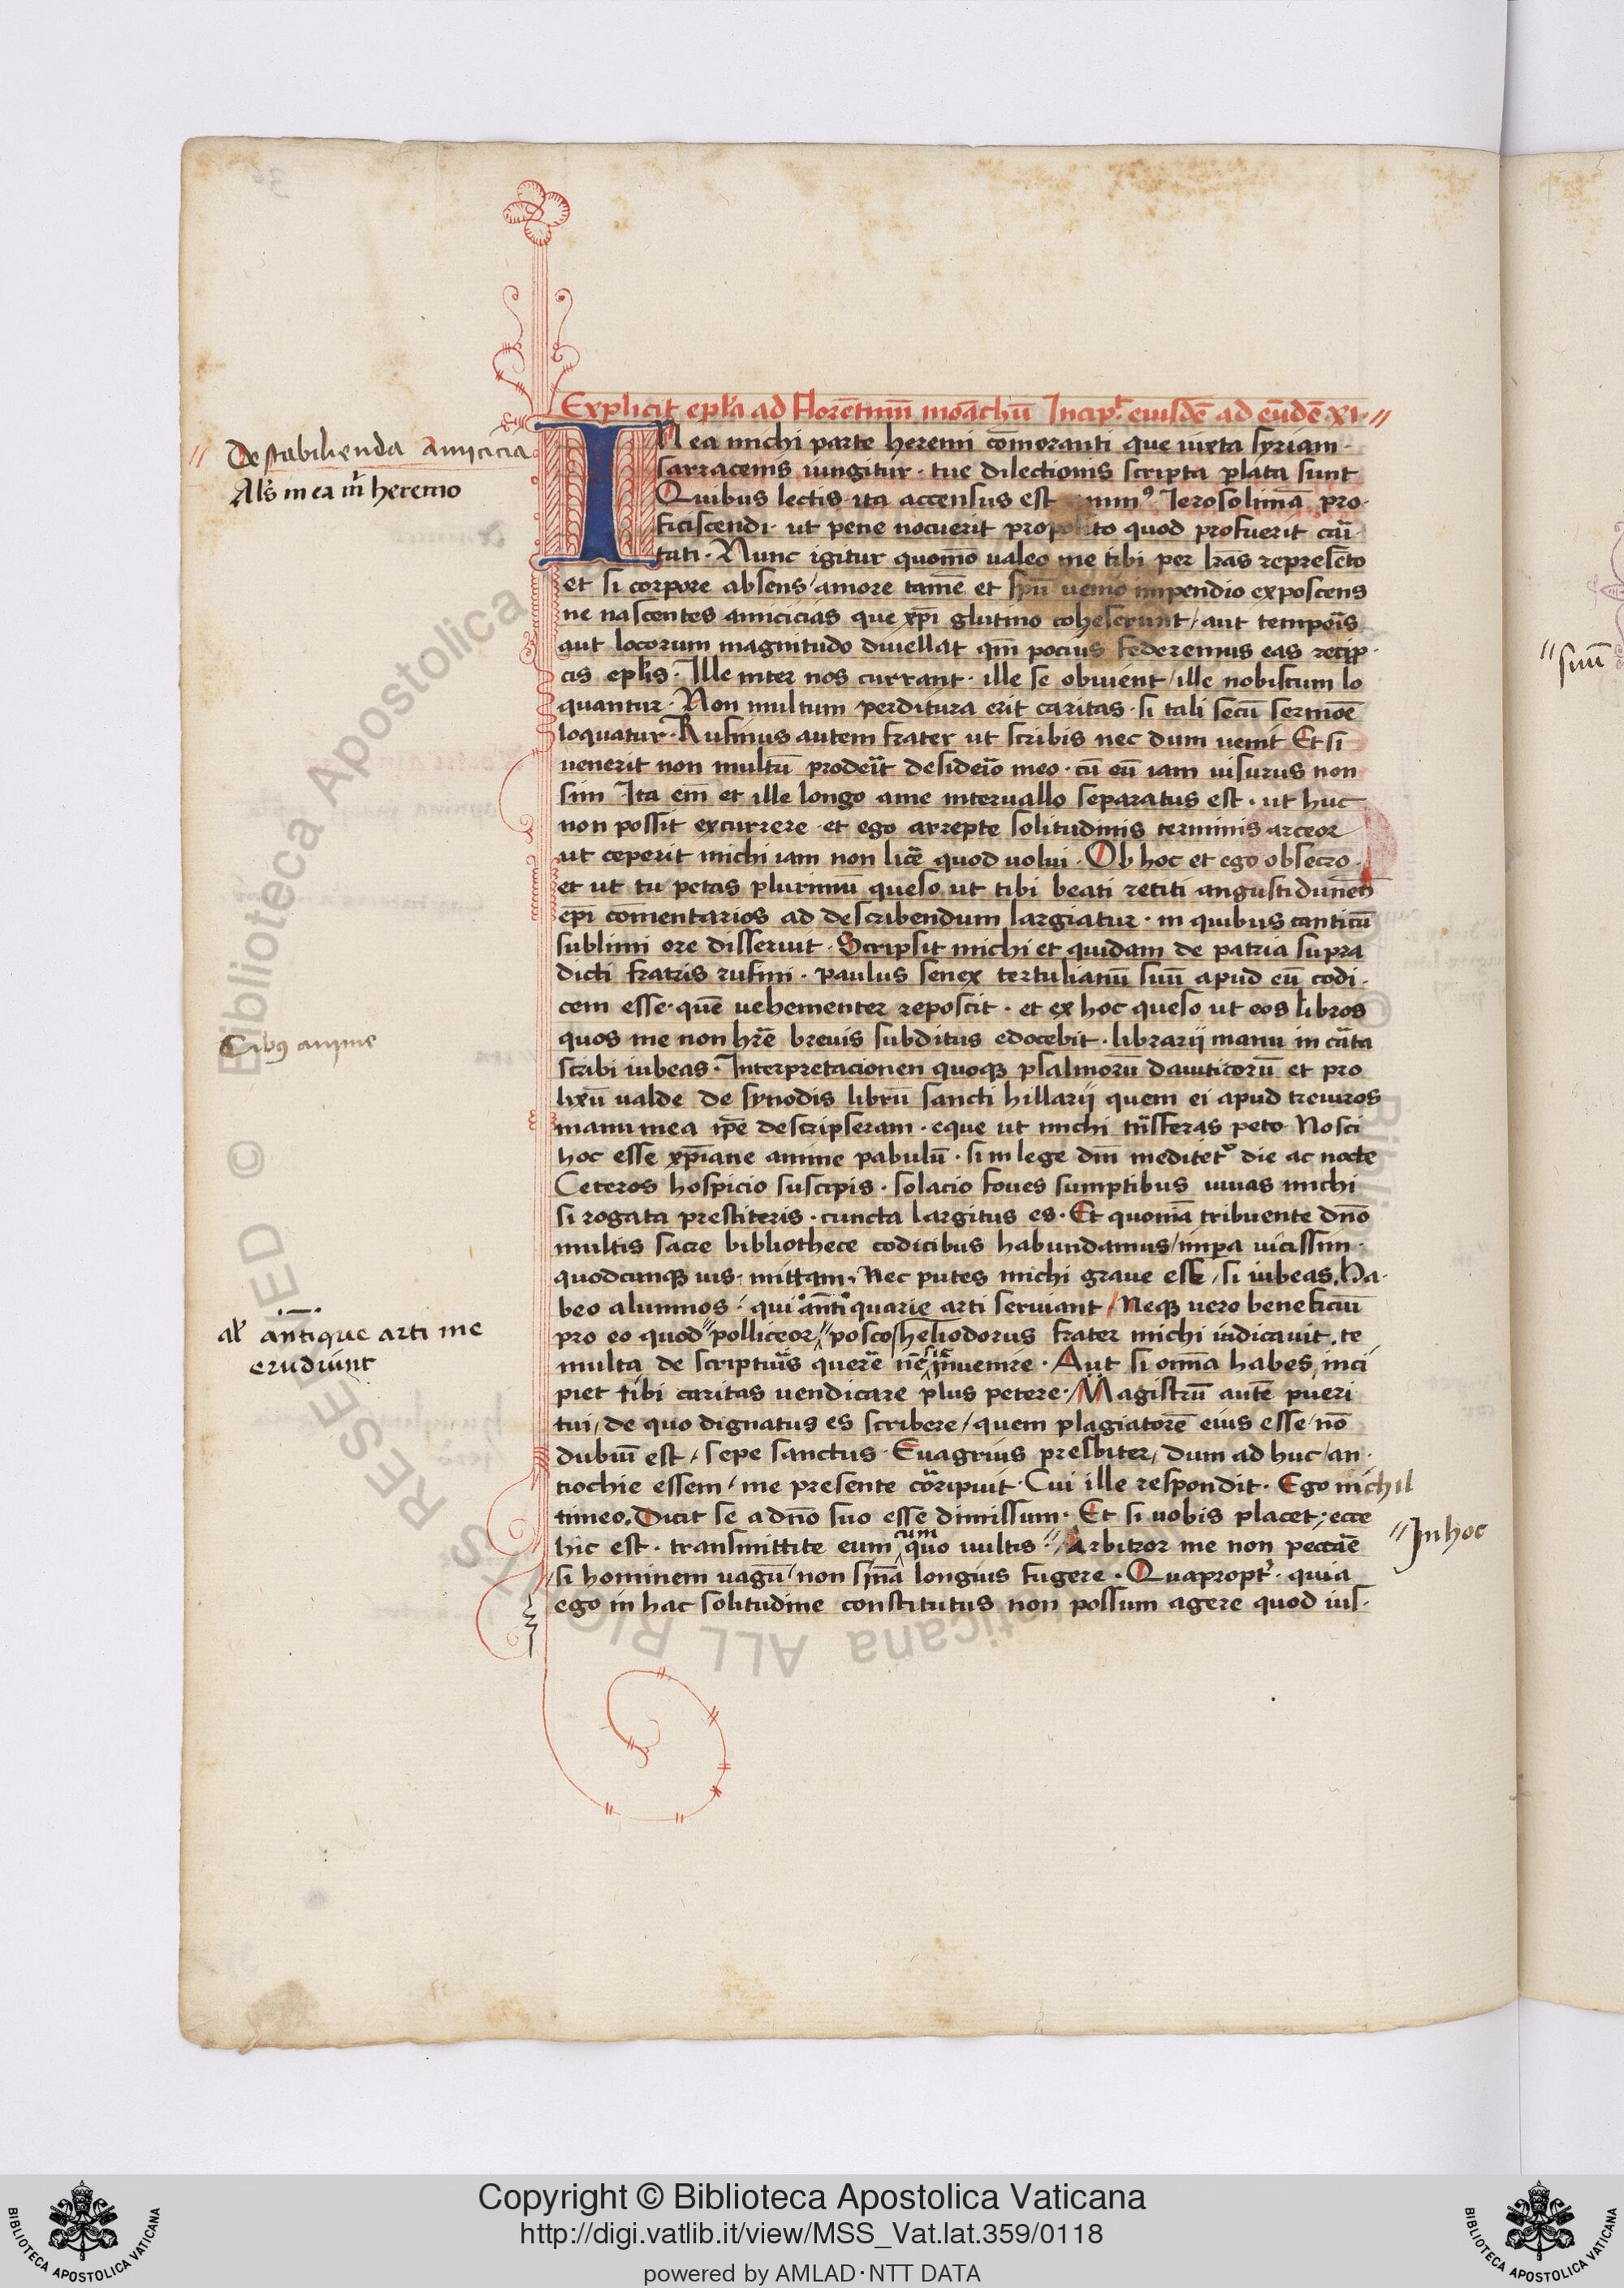 Explicit epl̄a ad Florētinū moāchū Incip̄t eiusdē ad eūdē · xi · //
// De stabilienda Amicicia
Al's in ea m̄ heremo
IN ea michi parte heremi cōmoranti que iuxta syriam ·
sarracenis iungitur · tue dilectionis scripta plata sunt
Quibus lectis ita accensus est anim9 Ierosolimā pro·
ficiscendi · ut pene nocuerit proposito quod profuerit cāi·
tati · Nunc igitur quomō ualeo me tibi per lrās represēto
et si corpore absens / amore tamē et spū uenio impendio exposcens
ne nascentes amicicias que xp̄i glutino coheserunt / aut tempoīs
aut locorum magnitudo diuellat qm̄ pocius federemus eas recip·
cis epl̄is · Ille inter nos currant · ille se obuient / ille nobiscum lo
quantur · Non multum perditura erit caritas · si tali secū sermoē
loquatur · Rufinus autem frater ut scribis nec dum uenit Et si
uenerit non multū prodeīt desideīo meo · cū eū iam uisurus non
sim Ita em̄ et ille longo ame interuallo separatus est · ut huc
non possit excurrere · et ego arrepte solitudinis terminis arceor
ut ceperit michi iam non licē quod uolui · Ob hoc et ego obsecro ·
et ut tu petas plurimū queso ut tibi beati retiti angustidunen̄
ep̄i cōmentarios ad describendum largiatur · in quibus canticū
sublimi ore disseruit · Scripsit michi et quidam de patria supra
dicti fratris rufini · paulus senex tertulianū suū apud eū codi·
cem esse · quē uehementer reposcit · et ex hoc queso ut eos libros
quos me non hr̄e breuis subditus edocebit · librarij manu in cāta
Cib9 anime
scribi iubeas · Interpretacionen quoqꝫ psalmorū dauiticorū et pro
lixū ualde de synodis librū sancti hillarij quem ei apud treuiros
manu mea ip̄e descripseram · eque ut michi trāsferas peto Nosci
hoc esse xp̄iane anime pabulū · si in lege dn̄i meditet᷒ die ac nocte
Ceteros hospicio suscipis · solacio foues sumptibus iuuas michi
si rogata prestiteris · cuncta largitus es · Et quoniā tribuente dn̄o
multis sacre bibliothece codicibus habundamus / impa uicissim ·
quodcunqꝫ uis · mittam · Nec putes michi graue esse / si iubeas. Ha·
beo alumnos · qui anti quarie arti seruiant / Neqꝫ uero beneficiū
al' antique arti me
erudiunt
pro eo quod polliceor // posco / heliodorus frater michi indicauit . te
multa de scriptuīs querē nē inuenire · Aut si omn̄a habes inci
piet tibi caritas uendicare plus petere · Magistrū autē pueri
tui / de quo dignatus es scribere / quem plagiatorē eius esse / nō
dubiū est / sepe sanctus · Euagrius presbiter / dum ad huc / an·
tiochie essem / me presente cōripuit · Cui ille respondit · Ego nichil
timeo. Dicit se a dn̄o suo esse dimissum · Et si uobis placet / ecce
hic est · transmittite eum cum quo uultis // Arbitror me non peccāe
// In hoc
/ si hominem uagū / non sinā longius fugere · Quapropt᷒ · quia
ego in hac solitudine constitutus non possum agere quod ius·
// suū
Copyright © Biblioteca Apostolica Vaticana
http://digi.vatlib.it/view/MSS_Vat.lat.359/0118
powered by AMLAD·NTT DATA
BIBLIOTECA APOSTOLICA VATICANA
BIBLIOTECA APOSTOLICA VATICANA